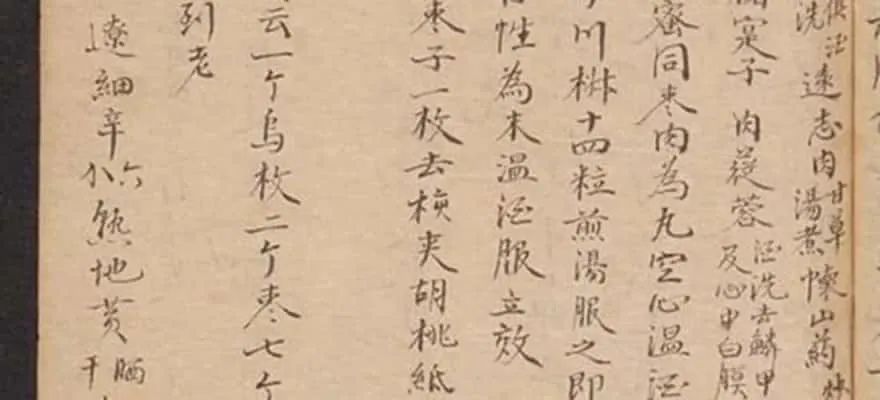 俱酒洗 遠志肉 甘草湯煮 懷山藥
寔子 肉蓯蓉 酒洗去鱗甲及心中白膜
蜜同枣肉為丸空心温酒
川椒十四粒煎湯服之即
性為末温酒服立效
枣子一枚去核夹胡桃紙
云一个烏枚二个枣七个
到老
遼細辛 六分 熟地黄 晒干